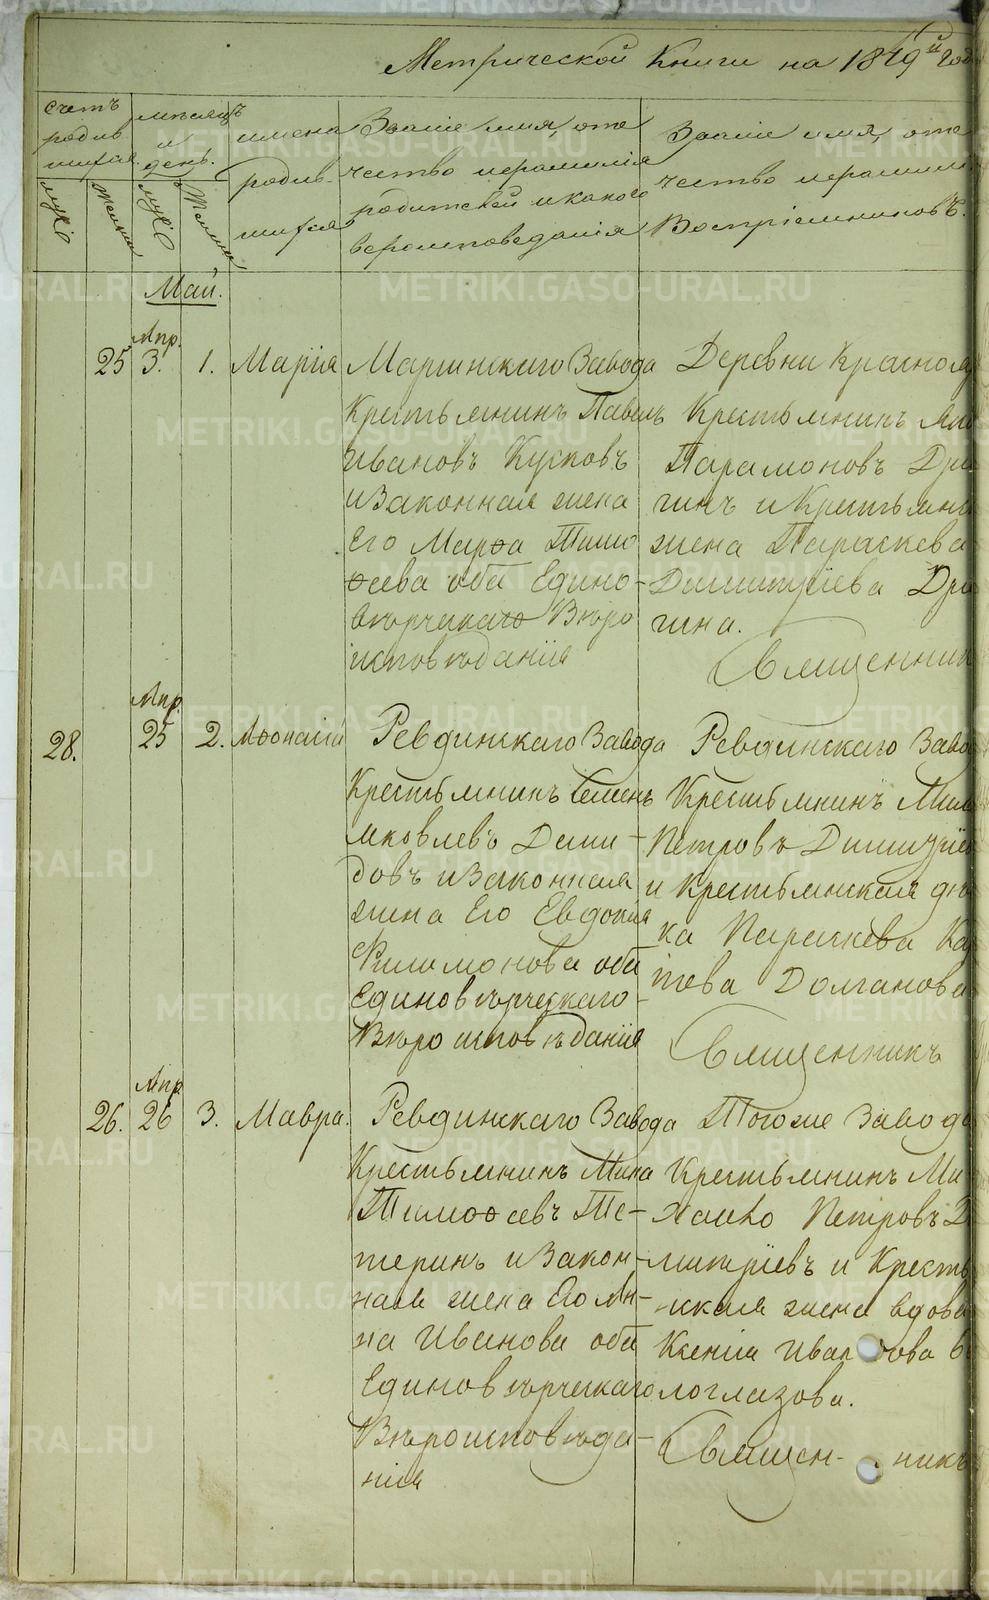 Метрической Книги на 1879й год
Счетъ родив шихся.
мѣсяцъ и день.
имена родив шихся
Званіе имя, оте чество и фамилія родителей и какого вероисповеданія
Званіе имя, оте чество и фамилія Воспріемниковъ.
муж
женск
муж
женск
Май.
Апр.
25 3. 1. Марія Мариинскаго Завода
Крестьянинъ Павелъ
Ивановъ Кусковъ
и Законная жена
Его Марѳа Тимо
ѳеева оба Едино-
вѣрческаго Вѣро
исповѣданія
Деревни Краснояр
Крестьянинъ
Парамоновъ Дря
гинъ и Крестьянск
жена Параскева
Димитріева Дря
гина.
Священник
Апр.
28. 25 2. Аѳонасій Ревдинскаго Завода
Крестьянинъ Семенъ
Яковлевъ Деми-
довъ и Законная
жена Его Евдокія
Филимонова оба
Единовѣрческаго-
Вѣроисповѣданія
Ревдинскаго Заво
Крестьянинъ Миха
Петровъ Димитріев
и Крестьянская дѣв
ка Параскева Ка
питова Долганова
Священникъ
Апр
26. 26 3. Мавра. Ревдинскаго Завода
Крестьянинъ
Тимоѳеевъ Те-
теринъ и Закон-
ная жена Его Ан-
на Иванова оба
Единовѣрческаго
Вѣроисповѣда-
нія
Тогоже Завода
Крестьянинъ Ми-
хаило Петровъ Д
митріевъ и Кресть
нская жена вдова
Ксенія Иванова Бѣ
логлазова.
Священ- никъ
METRIKI.GASO-URAL.RU